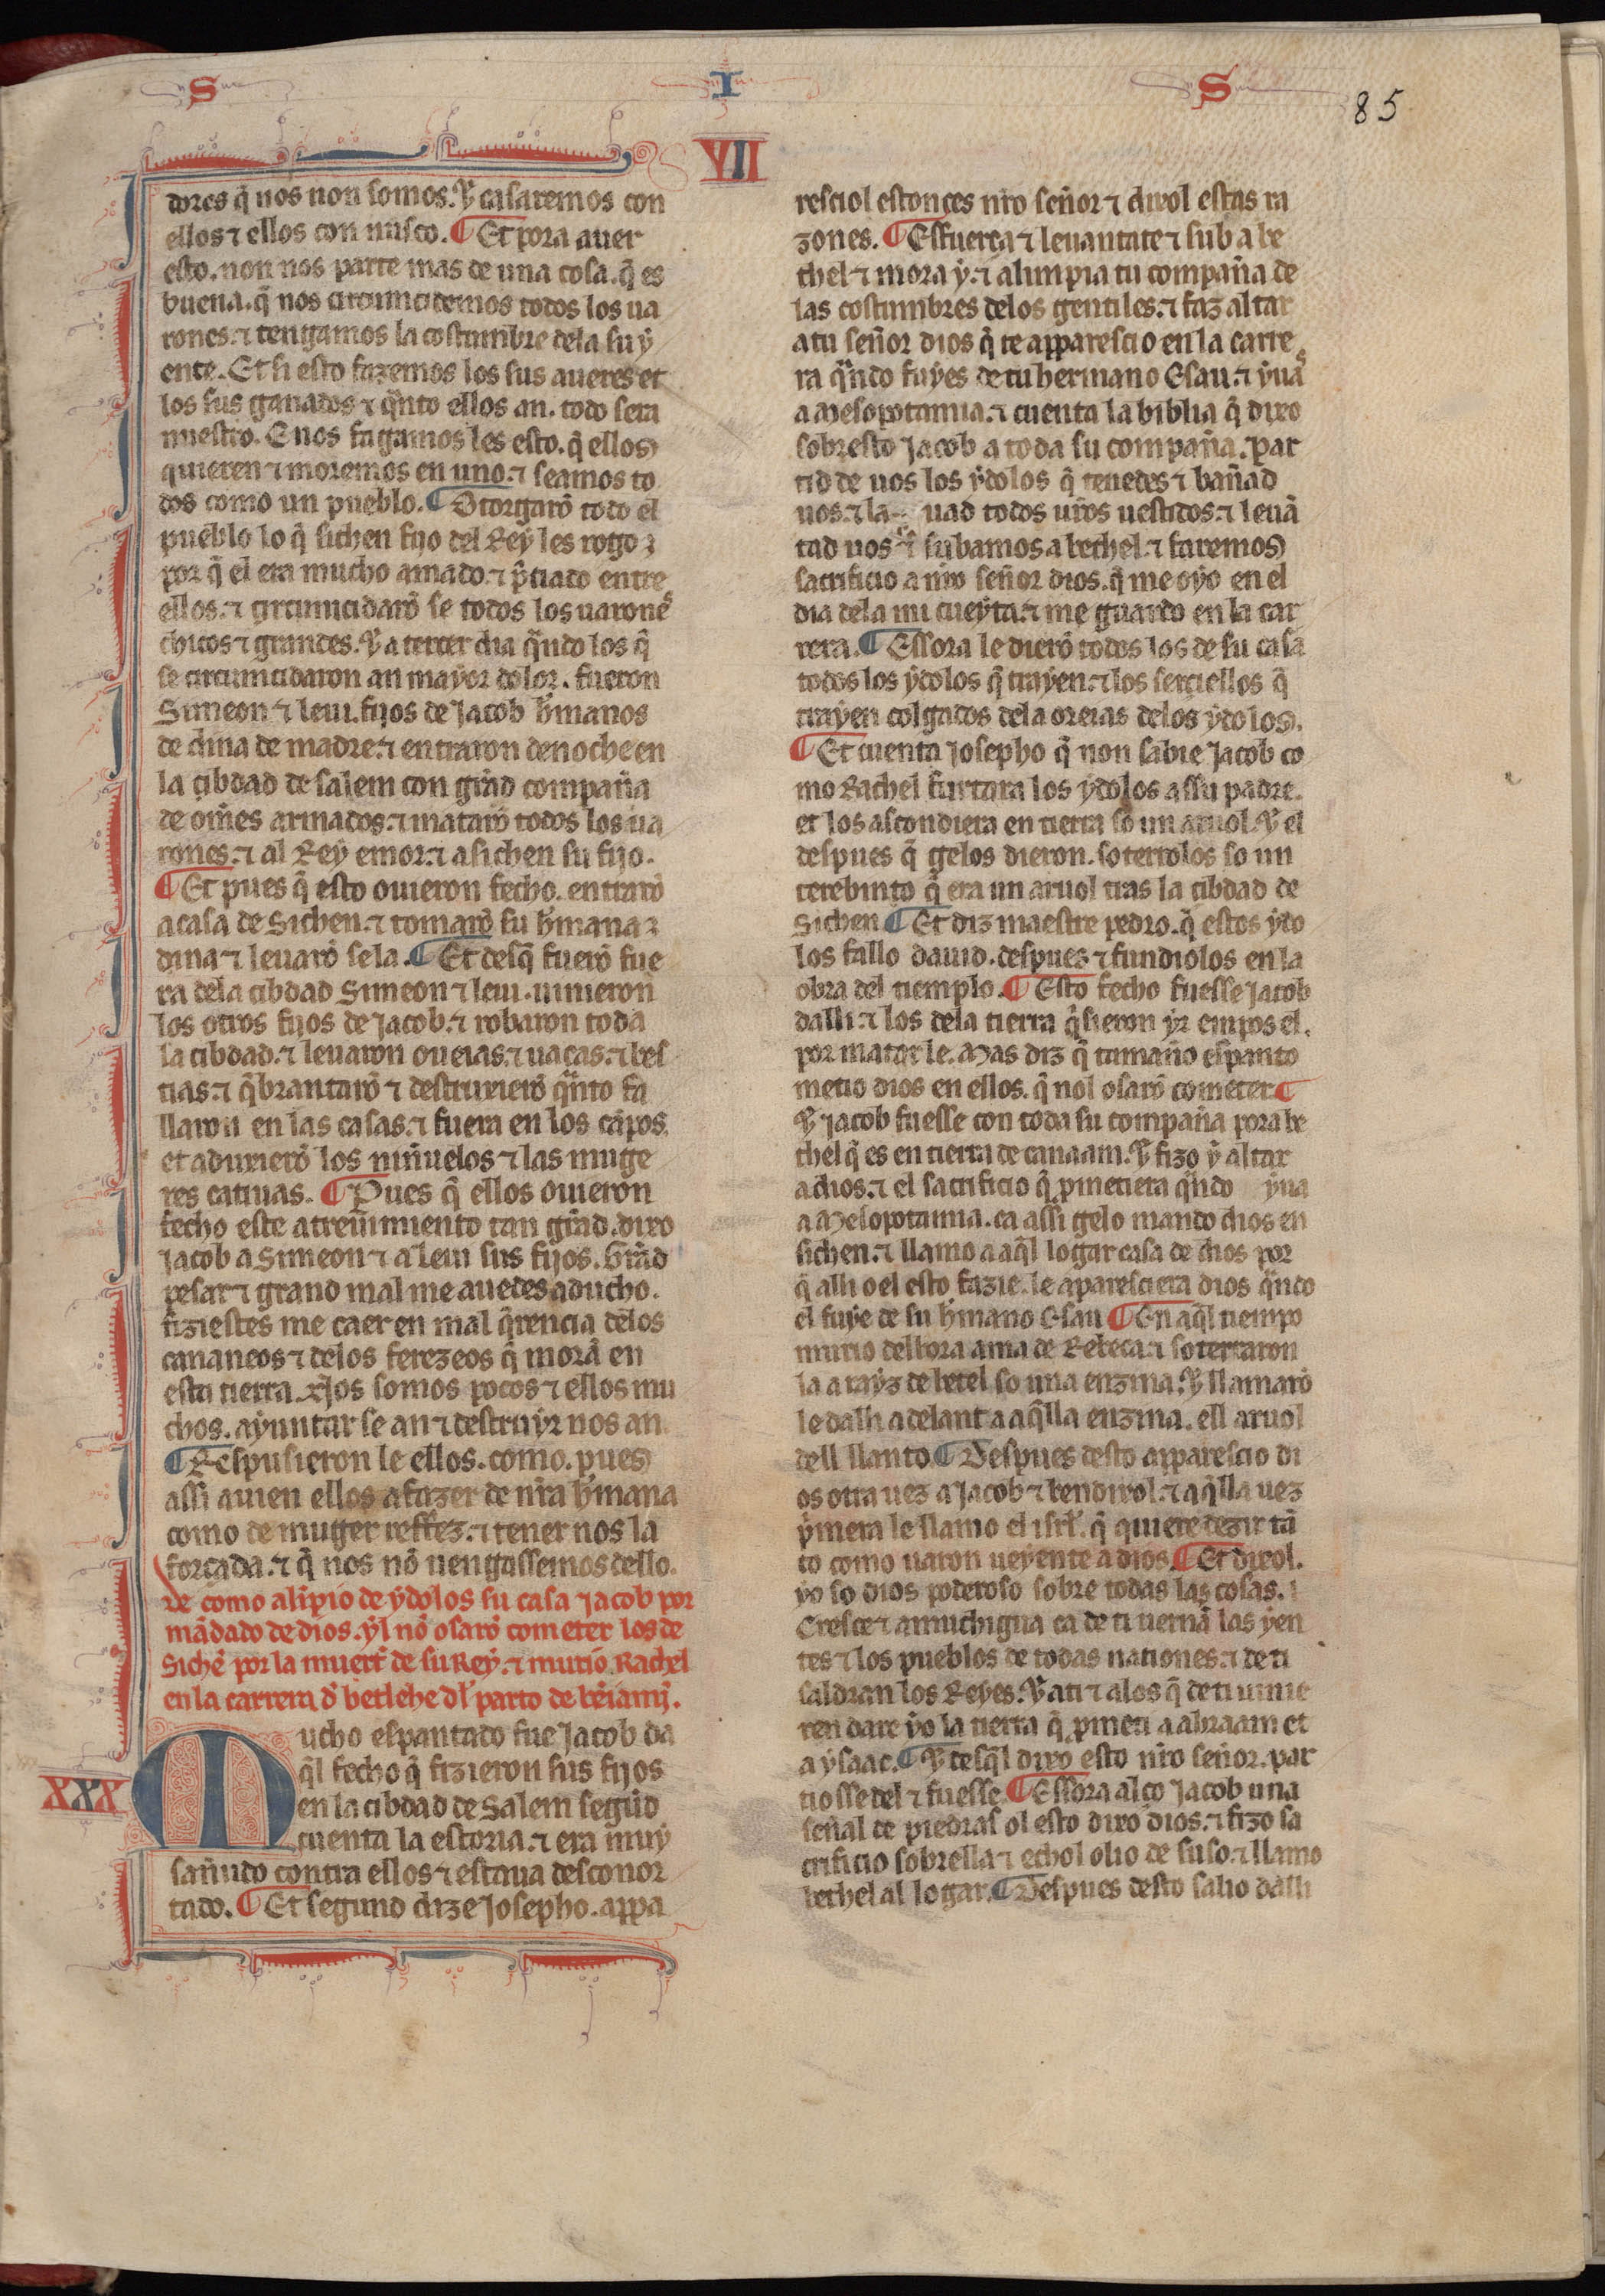 S I S
85
VII
dores q̃ nos non somos. Y casaremos con
ellos ⁊ ellos con nusco. ¶ Et pora auer
esto. non nos parte mas de una cosa. q̃ es
buena. q̃ nos circumcidemos todos los ua
rones. ⁊ tengamos la costumbre dela su ẏ
ente. Et si esto fazemos los sus aueres et
los sus ganados ⁊ q̃nto ellos an. todo sera
nuestro. E nos fagamos les esto. q̃ ellos
quieren ⁊ moremos en uno. ⁊ seamos to
dos como un pueblo. ¶ Otorgarõ todo el
pueblo lo q̃ sichen fijo del Reẏ les rogo
por q̃ el era mucho amado. ⁊ p̃ciado entre
ellos. ⁊ circumcidarõ se todos los uarones
chicos ⁊ grandes. Y a tercer dia q̃ndo los q̃
se circumcidaron an mayor dolor. fueron
Simeon ⁊ leui. fijos de Jacob h̃manos
de dina de madre. ⁊ entraron denoche en
la cibdad de salem con grãd compaña
de om̃es armados. ⁊ matarõ todos los ua
rones. ⁊ al Reẏ emor. ⁊ a sichen su fijo.
¶ Et pues q̃ esto ouieron fecho. entrarõ
a casa de Sichen. ⁊ tomarõ su h̃mana
dina ⁊ leuarõ sela. ¶ Et desq̃ fuerõ fue
ra dela cibdad Simeon ⁊ leui. uinieron
los otros fijos de Jacob. ⁊ robaron toda
la cibdad. ⁊ leuaron oueias. ⁊ uacas. ⁊ bes
tias. ⁊ q̃brantarõ ⁊ destruxierõ q̃nto fa
llaron en las casas. ⁊ fuera en los cãpos.
et aduxierõ los niñuelos ⁊ las muge
res catiuas. ¶ Pues q̃ ellos ouieron
fecho este atreuimiento tan grãd. dixo
Jacob a Simeon ⁊ a leui sus fijos. Grãd
pesar ⁊ grand mal me auedes aducho.
fiziestes me caer en mal q̃rencia delos
cananeos ⁊ delos ferezeos q̃ morã en
esta tierra. Nos somos pocos ⁊ ellos mu
chos. aẏuntar se an ⁊ destruẏr nos an.
¶ Respusieron le ellos. como. pues
assi auien ellos a fazer de nr̃a h̃mana
como de muger reffez. ⁊ tener nos la
forçada. ⁊ q̃ nos nõ uengassemos dello.
De como alĩpio de ẏdolos su casa Jacob por
mãdado de dios. ẏl nõ osarõ cometer los de
Sichẽ por la muert̃ de su Reẏ. ⁊ murio Rachel
en la carrera d̃ betlehẽ dl̃ parto de bẽiamĩ.
XXX
Mucho espantado fue Jacob da
q̃l fecho q̃ fizieron sus fijos
en la cibdad de Salem segũd
cuenta la estoria. ⁊ era muẏ
sañudo contra ellos ⁊ estaua desconor
tado. ¶ Et segund dize Josepho. appa
resciol estonçes nr̃o señor ⁊ dixol estas ra
zones. ¶ Esfuerça ⁊ leuantate ⁊ sub a be
thel ⁊ mora ẏ. ⁊ alimpia tu compaña de
las costumbres delos gentiles. ⁊ faz altar
a tu señor dios q̃ te apparescio en la carre
ra q̃ndo fuẏes de tu hermano Esau. ⁊ ẏuas
a Mesopotamia. ⁊ cuenta la biblia q̃ dixo
sobresto Jacob a toda su compaña. Par
tid de uos los ẏdolos q̃ tenedes ⁊ bañad
uos. ⁊ la uad todos ur̃os uestidos. ⁊ leuã
tad uos ⁊ subamos a bethel. ⁊ faremos
sacrificio a nr̃o señor dios. q̃ me oyo en el
dia dela mi cueẏta. ⁊ me guardo en la car
rera. ¶ Essora le dierõ todos los de su casa
todos los ẏdolos q̃ traẏen. ⁊ los serciellos q̃
traẏen colgados dela oreias delos ẏdolos.
¶ Et cuenta Josepho q̃ non sabie Jacob co
mo Rachel furtara los ẏdolos assu padre.
et los ascondiera en tierra so un aruol. Y el
despues q̃ gelos dieron. soterrolos so un
terebinto q̃ era un aruol tras la cibdad de
Sichen ¶ Et diz maestre pedro. q̃ estos ẏdo
los fallo dauid. despues ⁊ fundiolos en la
obra del tiemplo. ¶ Esto fecho fuesse Jacob
dalli. ⁊ los dela tierra q̃sieron ẏr empos el.
por matarle. Mas diz q̃ tamaño espanto
metio dios en ellos. q̃ nol osarõ cometer. ¶
Y Jacob fuesse con toda su compaña pora be
thel q̃ es en tierra de canaam. Y fizo ẏ altar
a dios. ⁊ el sacrificio q̃ p̃metiera q̃ndo ẏua
a Mesopotamia. ca assi gelo mando dios en
sichen. ⁊ llamo a aq̃l logar casa de dios por
q̃ alli o el esto fazie. le aparesciera dios q̃ndo
el fuẏe de su h̃mano Esau ¶ En aq̃l tiempo
murio delbora ama de Rebeca. ⁊ soterraron
la a raẏz de betel so una enzina. Y llamarõ
le dalli adelant a aq̃lla enzina. ell aruol
dell llanto. ¶ Despues desto apparescio di
os otra uez a Jacob ⁊ bendixol. ⁊ aq̃lla uez
p̃mera le llamo el isrl̃. q̃ quiere dezir tã
to como uaron ueẏente a dios. ¶ Et dixol.
ẏo so dios poderoso sobre todas las cosas.
Cresce ⁊ amuchigua ca de ti uernã las ẏen
tes ⁊ los pueblos de todas nationes. ⁊ de ti
saldran los Reẏes. Y a ti ⁊ alos q̃ de ti uinie
ren dare ẏo la tierra q̃ p̃meti a abraam et
a ẏsaac. ¶ Y desq̃l dixo esto nr̃o señor. par
tiosse del ⁊ fuesse. ¶ Essora alço Jacob una
señal de piedras ol esto dixo dios. ⁊ fizo sa
crificio sobrella ⁊ echol olio de suso. ⁊ llamo
bethel al logar. ¶ Despues desto salio dalli